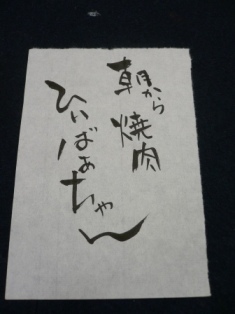 朝から
焼肉
ひいばあちゃん